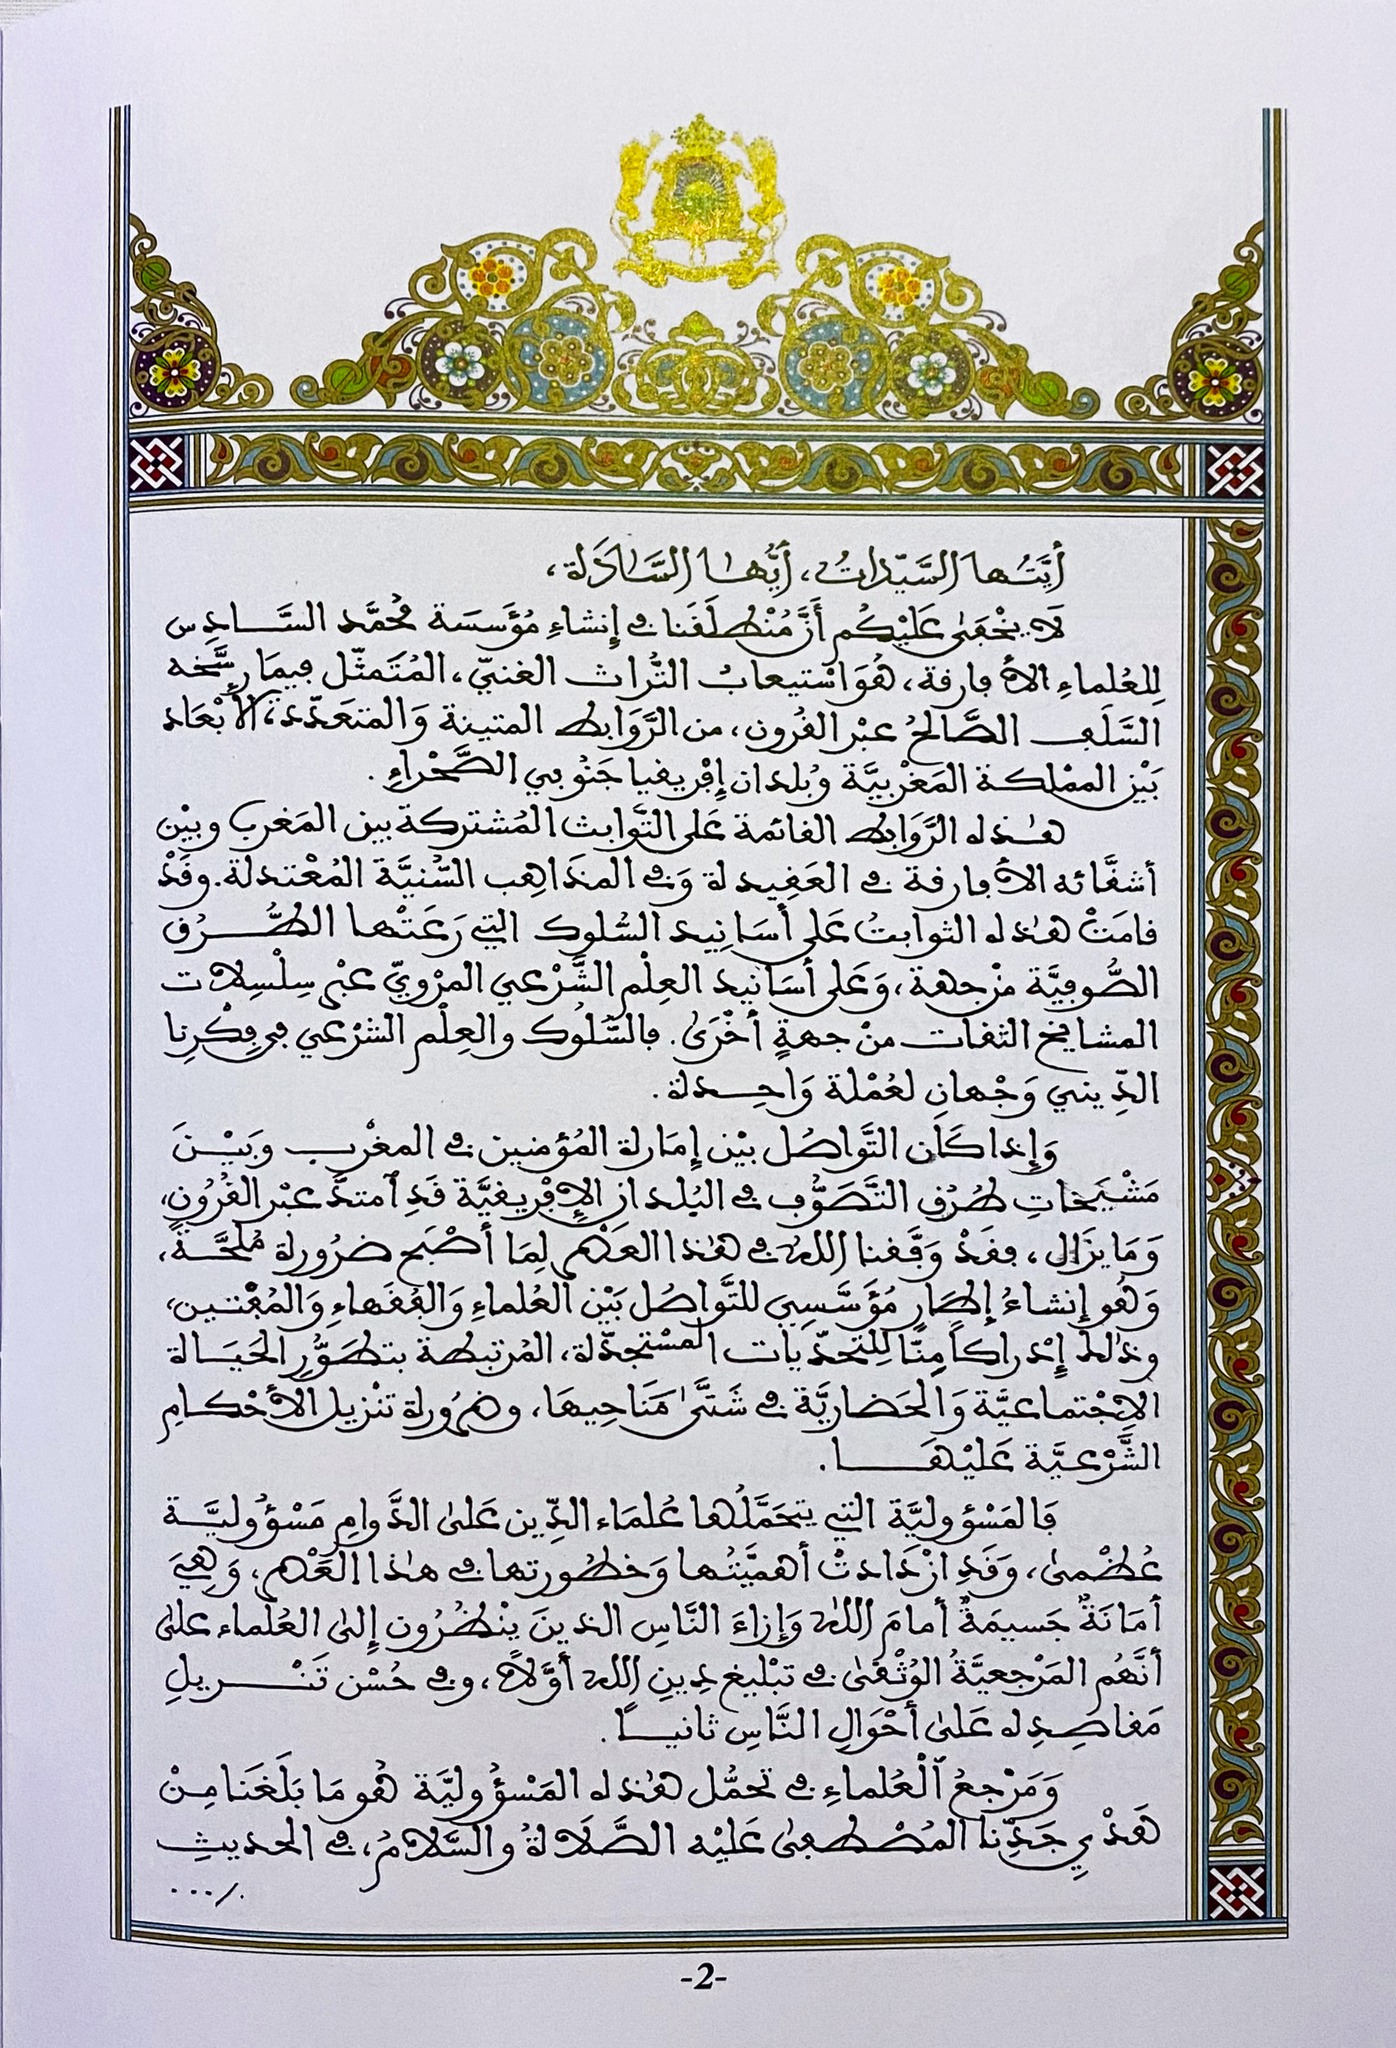 أيَّتُها السَّيّداتُ، أيُّها السَّادَة،
لاَ يَخْفَى عَلَيْكُم أَنَّ مُنْطلَقَنا في إنشاءِ مُؤَسَسَة مُحمَّد السَّادِس
لِلعُلماءِ الأفارقة، هُوَ اسْتيعابُ التُّراث الغنيّ، المُتَمثّل فيمَا رسَّخه
السَّلَف الصَّالحُ عبْر القُرون، من الرَّوَابط المتينة وَالمتعَدّدة الأبْعَاد
بَيْن المملكة المَغْربيَّة وبُلدان إفْريقيا جَنُوبي الصَّحْراءِ.
هـٰذه الرَّوَابط القائمة عَلى الثَّوابث المُشتركة بين المَغرب وبيْن
أشقَّائه الأفارقة في العَقيدة وَفي المذَاهِب السُّنيَّة المُعْتدلة. وقَدْ
قامَتْ هـٰذه الثوابتُ عَلى أسَانِيد السُّلوك التي رَعَتْها الطُّرُق
الصُّوفيَّة منْ جهة، وَعَلى أسَانيد العِلْم الشَّرْعي المرْويّ عبْر سِلْسِلات
المشايخ الثقات منْ جهةٍ أخْرَى. فالسُّلُوك والعِلْم الشرْعي في فِكْرِنا
الدِّيني وَجْهانِ لعُمْلة وَاحِدة.
وَإذا كَان التَّواصُل بيْن إمَارة المُؤمنين في المغْرب وَبَيْنَ
مَشْيَخاتِ طُرُق التَّصَوُّف في البُلدان الإفْريقيَّة قَدِ ٱمتدَّ عبْر القُرُونِ،
وَمَا يَزَال، فقدْ وَفَّقنا اللهُ في هـٰذا العَصْر لِمَا أصْبَح ضرُورة مُلحَّة،
وَهُو إنشاءُ إطَار مُؤَسَّسِي للتَّواصُل بَيْن العُلماءِ وَالفُقَهاءِ وَالمُفْتين،
وذٰلكَ إدْراكاً مِنَّا لِلتحدّيات المسْتجدّة، المُرتبطة بتطَوُّرِ الحَيَاة
الاِجْتماعيَّة وَالحَضاريَّة في شَتَّى مَنَاحِيها، وضرُورة تنْزيل الأحْكامِ
الشَّرْعيَّة عَليْهَا.
فَالمَسْؤوليَّة التي يتحَمَّلُها عُلمَاء الدِّين عَلى الدَّوامِ مَسْؤُوليَّة
عُظْمىٰ، وَقَدِ ازْدَادتْ أهمِّيَّتُها وَخطُورتها في هـٰذا العَصْر، وَهِيَ
أمَانَةٌ جَسِيمَةٌ أمامَ اللهِ وَإزاءَ النَّاسِ الذينَ يَنْظُرُون إلى العُلماءِ على
أنَّهُم المَرْجعيَّةُ الوُثْقىٰ في تبْليغ دِينِ اللهِ أوَّلاً، وفي حُسْن تَنْـزيلِ
مَقاصِدِه عَلىٰ أحْوَالِ النَّاسِ ثانيـاً.
وَمَرْجعُ ٱلْعُلماءِ في تحمُّل هـٰذه المَسْؤُوليَّة هُو مَا بَلَغَنَا مِنْ
هَدْيِ جَدِّنَا المُصْطفىٰ عَلَيْه الصَّلاَةُ والسَّلامُ، في الحديثِ
.../.
-2-